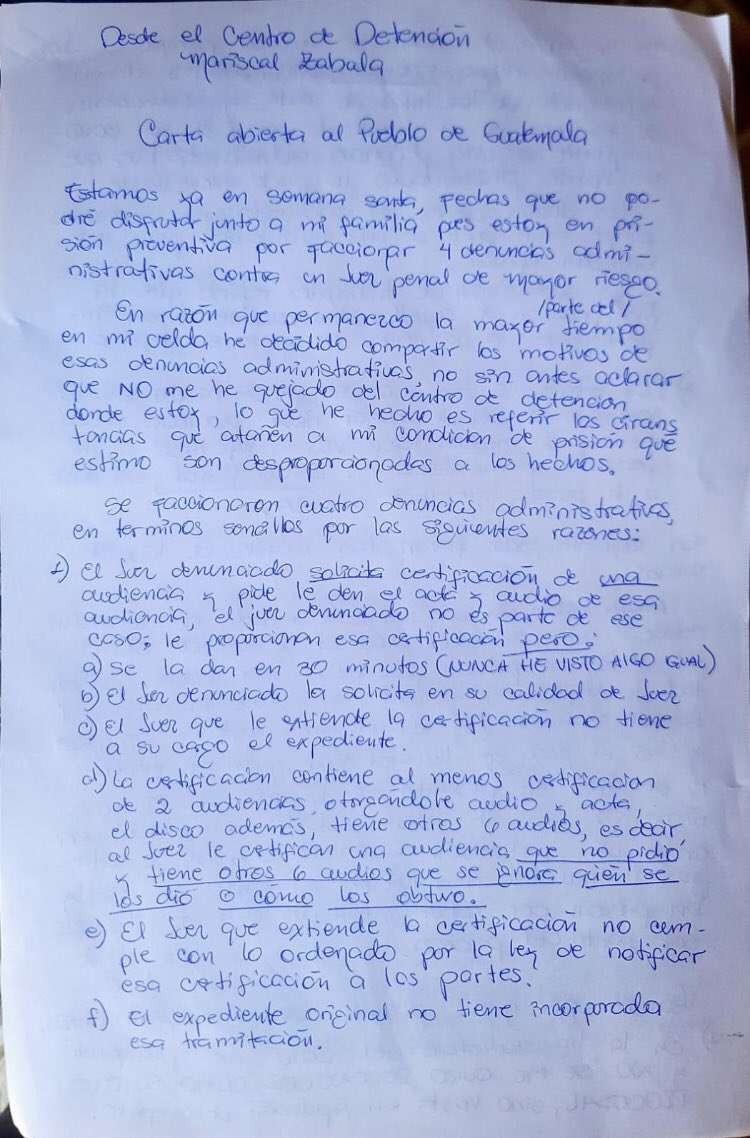 Desde el Centro de Detención
Mariscal Zabala
Carta abierta al Pueblo de Guatemala
Estamos ya en semana santa, fechas que no po-
dré disfrutar junto a mi familia pues estoy en pri-
sión preventiva por faccionar 4 denuncias admi-
nistrativas contra un Juez penal de mayor riesgo.
/parte del/
En razón que permanezco la mayor tiempo
en mi celda he decidido compartir los motivos de
esas denuncias administrativas, no sin antes aclarar
que NO me he quejado del centro de detención
donde estoy, lo que he hecho es referir las circuns
tancias que atañen a mi condición de prisión que
estimo son desproporcionadas a los hechos.
Se faccionaron cuatro denuncias administrativas,
en terminos sencillos por las siguientes razones:
1) El Juez denunciado solicita certificación de una
audiencia y pide le den el acta y audio de esa
audiencia, el juez denunciado no es parte de ese
caso; le proporcionan esa certificación pero:
a) Se la dan en 30 minutos (NUNCA HE VISTO ALGO IGUAL)
b) El Juez denunciado la solicita en su calidad de Juez
c) El Juez que le extiende la certificación no tiene
a su cargo el expediente.
d) La certificación contiene al menos certificacion
de 2 audiencias, otorgandole audio y acta,
el disco además, tiene otros 6 audios, es decir,
al Juez le certifican una audiencia que no pidió
y tiene otros 6 audios que se ignora quién se
los dio o cómo los obtuvo.
e) El Juez que extiende la certificación no cum-
ple con lo ordenado por la ley de notificar
esa certificación a las partes.
f) El expediente original no tiene incorporada
esa tramitación.